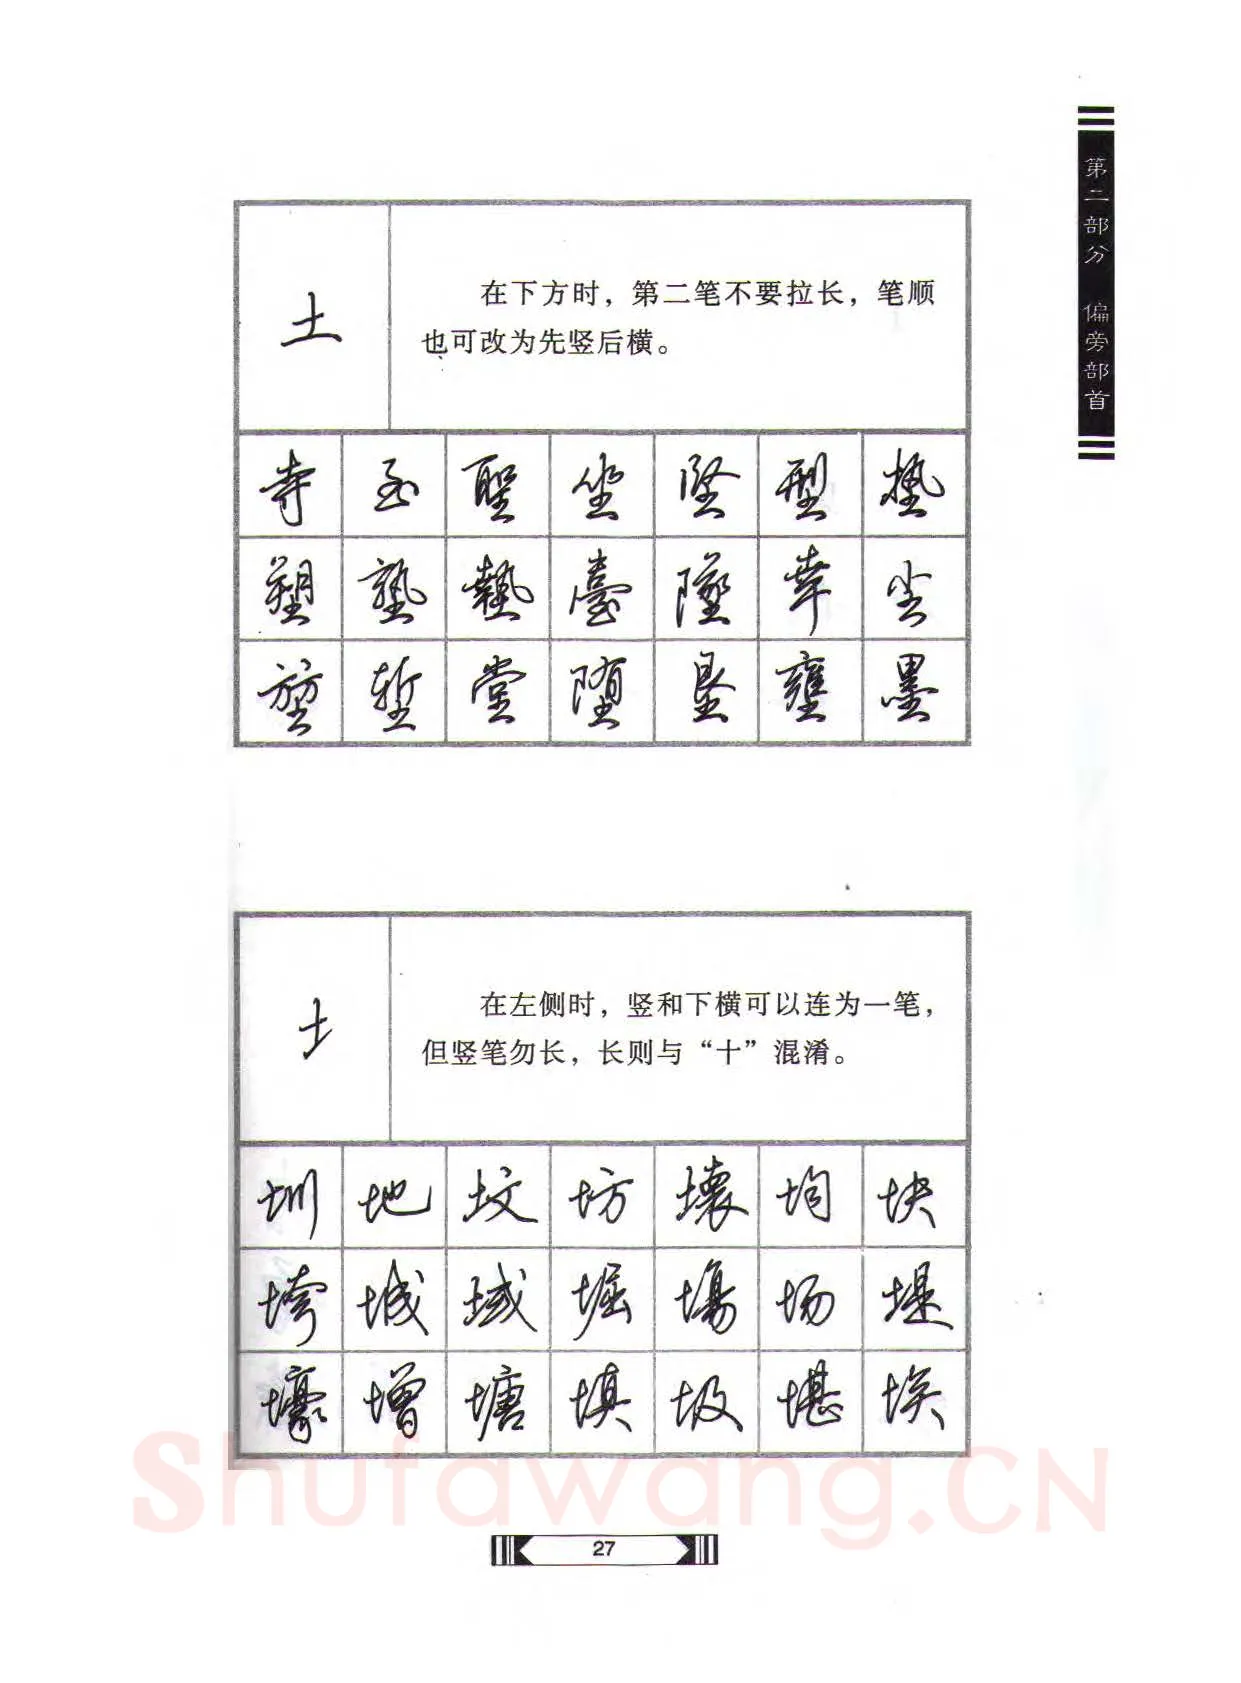 第二部分 偏旁部首
土
在下方时，第二笔不要拉长，笔顺
也可改为先竖后横。
寺 至 聖 坐 坚 型 垫
塑 塾 執 臺 墜 幸 尘
堃 堑 堂 堕 垦 壅 墨
土
在左侧时，竖和下横可以连为一笔，
但竖笔勿长，长则与“十”混淆。
圳 地 坟 坊 壞 均 块
垮 城 域 堀 塲 场 堤
壕 增 塘 填 圾 堪 埃
Shufawang.CN
27